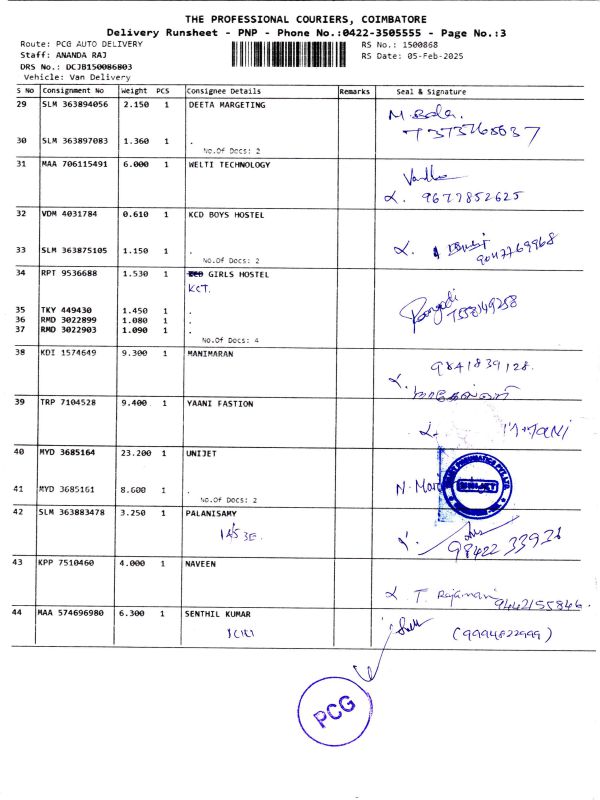 THE PROFESSIONAL COURIERS, COIMBATORE
Delivery Runsheet - PNP - Phone No.:0422-3505555 - Page No.:3
Route: PCG AUTO DELIVERY RS No.: 1500868
Staff: ANANDA RAJ RS Date: 05-Feb-2025
DRS No.: DCJB150086803
Vehicle: Van Delivery
S No Consignment No Weight PCS Consignee Details Remarks Seal & Signature
29 SLM 363894056 2.150 1 DEETA MARGETING
M. Bala
30 SLM 363897083 1.360 1 .
No.Of Docs: 2
31 MAA 706115491 6.000 1 WELTI TECHNOLOGY
9677852625
32 VDM 4031784 0.610 1 KCD BOYS HOSTEL
33 SLM 363875105 1.150 1 .
9047769968
No.Of Docs: 2
34 RPT 9536688 1.530 1 GIRLS HOSTEL
KCT.
7558149258
35 TKY 449430 1.450 1 .
36 RMD 3022899 1.080 1 .
37 RMD 3022903 1.090 1 .
No.Of Docs: 4
38 KDI 1574649 9.300 1 MANIMARAN
9841839128.
39 TRP 7104528 9.400 1 YAANI FASTION
40 MYD 3685164 23.200 1 UNIJET
41 MYD 3685161 8.600 1 .
No.Of Docs: 2
42 SLM 363883478 3.250 1 PALANISAMY
43 KPP 7510460 4.000 1 NAVEEN
T. Rajamani 9442155846.
44 MAA 574696980 6.300 1 SENTHIL KUMAR
(9994822999)
PCG